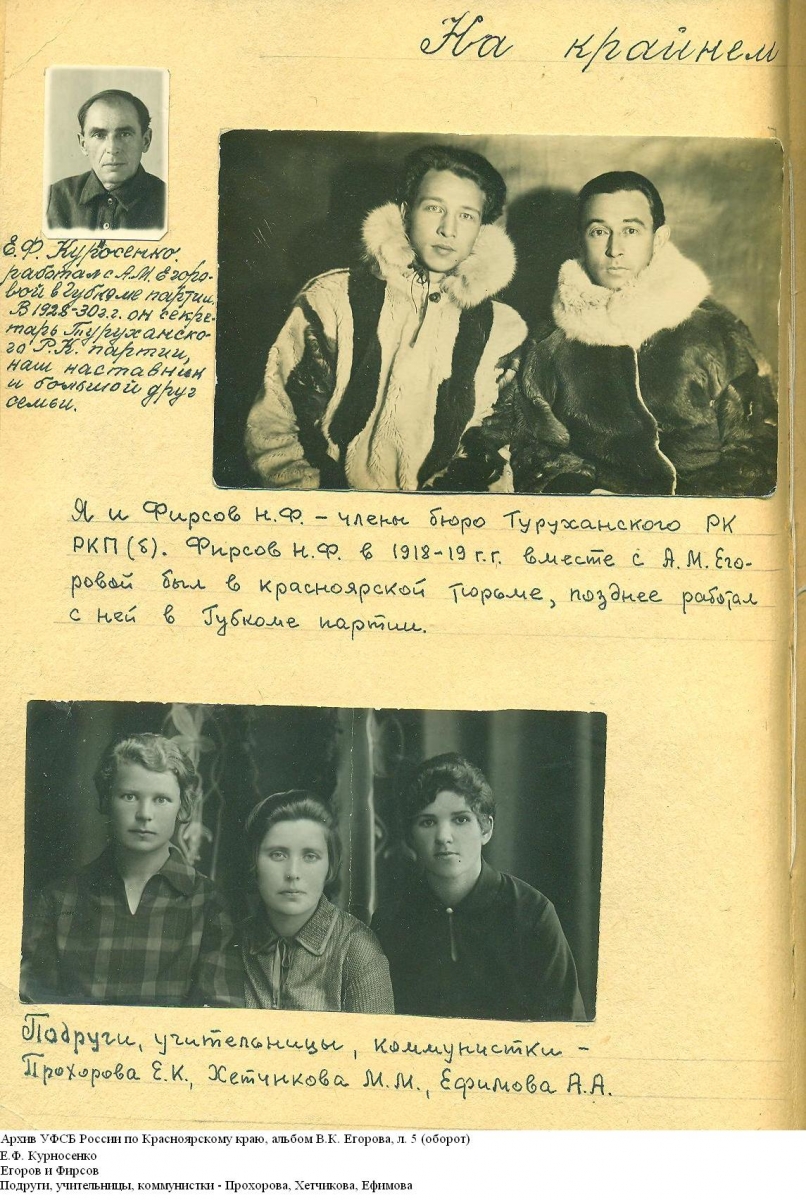 На крайнем
Е.Ф. Курносенко.
работал с А.М. Егоро-
вой в Губкоме партии.
В 1928-30 г.г. он секре-
тарь Туруханско-
го Р.К. партии,
наш наставник
и большой друг
семьи.
Я и Фирсов Н.Ф. – члены бюро Туруханского РК
РКП(б). Фирсов Н.Ф. в 1918-19 г.г. вместе с А.М. Его-
ровой был в красноярской тюрьме, позднее работал
с ней в Губкоме партии.
Подруги, учительницы, коммунистки –
Прохорова Е.К., Хетчикова М.М., Ефимова А.А.
Архив УФСБ России по Красноярскому краю, альбом В.К. Егорова, л. 5 (оборот)
Е.Ф. Курносенко
Егоров и Фирсов
Подруги, учительницы, коммунистки - Прохорова, Хетчикова, Ефимова